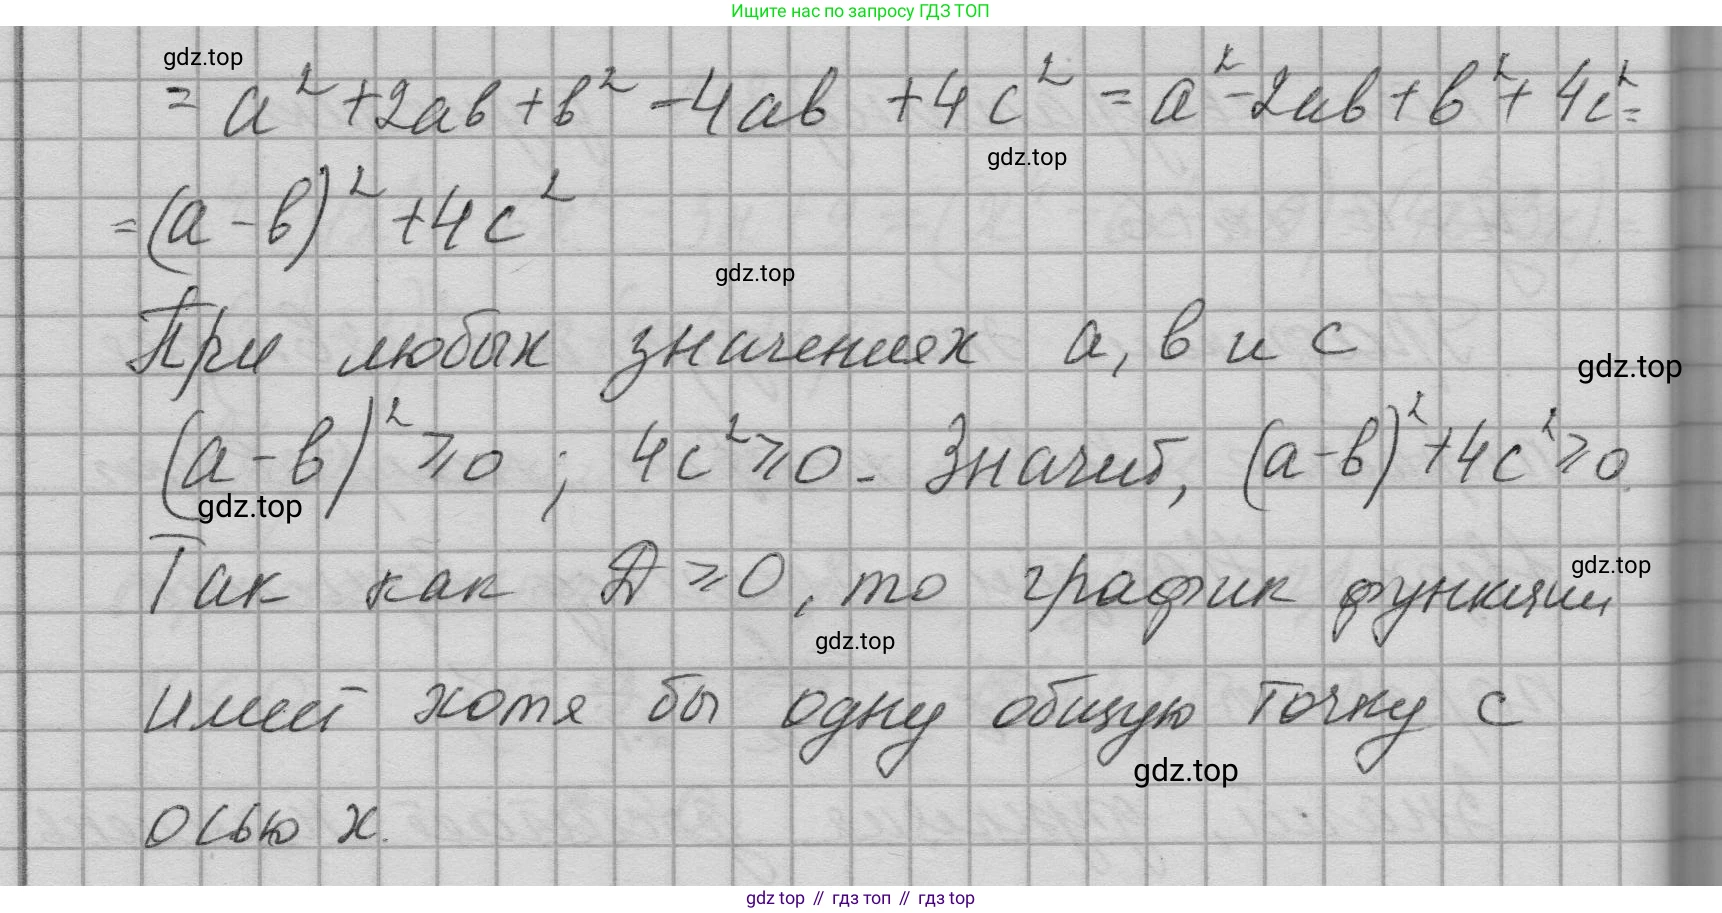 Ищите нас по запросу ГДЗ ТОП
gdz.top
= a² + 2ab + b² - 4ab + 4c² = a² - 2ab + b² + 4c² =
gdz.top
= (a - b)² + 4c²
gdz.top
При любых значениях a, b и c
gdz.top
(a - b)² ≥ 0 ; 4c² ≥ 0. Значит, (a - b)² + 4c² ≥ 0.
gdz.top
gdz.top
Так как D ≥ 0, то график функции
gdz.top
имеет хотя бы одну общую точку с
gdz.top
осью x.
gdz top // гдз топ // gdz top